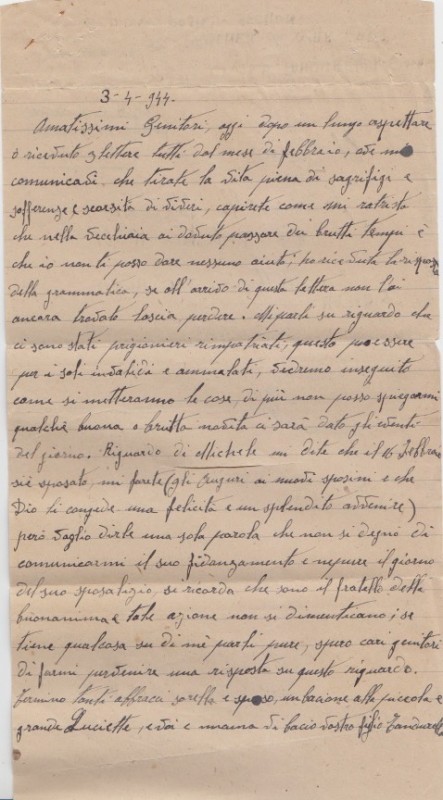 3-4-944.
Amatissimi Genitori, oggi dopo un lungo aspettare
ò ricevuto 3 lettere tutti dal mese di febbraio, che mi
comunicadi che tirate la vita piena di sagrifigi e
sofferenze e scarsità di viveri, capirete come mi rattrista
che nella vecchiaia ai dovuto passare dei brutti tempi è
che io non ti posso dare nessuno aiuto, ho ricevuto la risposta
della grammatica, se all'arrivo di questa lettera non l'ai
ancora trovato lascia perdere. Mi parli su riguardo che
ci sono stati prigionieri rimpatriati, questo può essere
per i soli invalidi e ammalati, vedremo inseguito
come si metteranno le cose, di più non posso spiegarmi
qualche buona o brutta novità ci sarà dato gli eventi
del giorno. Riguardo di Michele mi dite che il 16 Febbraio
si è sposato, mi farete (gli Auguri ai nuovi sposini e che
Dio li concede una felicità e un splendito avvenire)
però voglio dirle una sola parola che non si degnò di
comunicarmi il suo fidanzamento e nepure il giorno
del suo sposalizio, si ricorda che sono il fratello della
buonanima e tale azione non si dimenticano; se
tiene qualcosa su di mè parli pure, spero cari genitori
di farmi pervenire una risposta su questo riguardo.
Termino tanti abbracci sorella e sposo, un bacione alla piccola e
grande Luciette, e voi e mamma di bacio vostro figlio